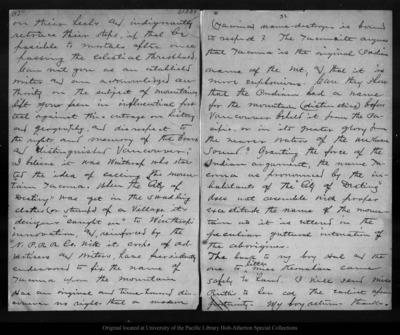 on their heels and indignantly
retrace their steps, if that be
possible to mortals after once
passing the celestial threshold.
Can not you as an established
writer and an acknowledged au-
thority on the subject of mountains
lift your pen in influential pro-
test against this outrage on history
and geography, and disrespect to
the rights and memory of the brave
and distinguished Vancouver;
I believe it was Winthrop who star-
ted the idea of calling the moun-
tain Tacoma. When the City of
Destiny was yet in the swaddling
clothes (or stumps) of a village its
designers caught on to Winthrop's
innovation and reinforced by the
N.P.R.R. Co. with its corps of ad-
vertisers and writers, have persistently
endeavored to fix the name of
Tacoma upon the mountain.
Has an original and time honored dis-
coverer no rights that a modern
(Tacoma) name-destroyer is bound
to respect? The Tacomaite argues
that Tacoma is the original Indian
name of the Mt. and that it is
more euphonious. Can they show
that the Indians had a name
for the mountain (distinctive) before
Vancouver beheld it from the Pa-
cific, or in its greater glory from
the nearer waters of the
Sound? Granting the force of the
Indian argument, the name Ta-
coma as pronounced by the in-
habitants of the "City of Destiny"
does not resemble with proper
exactitude the name of the moun-
tain as it is uttered in the
peculiar guttural intonation of
the aborigines.
The book to my boy Hal and the
one to Miss came
safely to hand. I will send Miss
Ruth's to her at the earliest
opportunity. My boy returns thanks.
Original located at University of the Pacific Library Holt-Atherton Special Collections